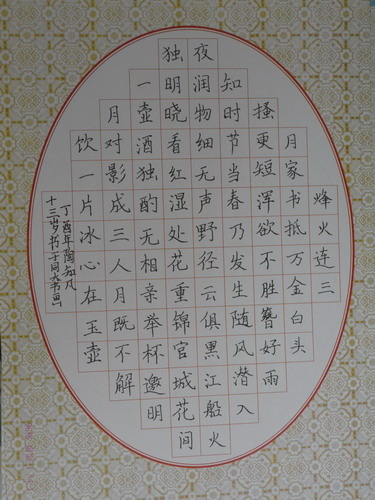 烽火连三
月家书抵万金白头
搔更短浑欲不胜簪好雨
知时节当春乃发生随风潜入
夜润物细无声野径云俱黑江船火
独明晓看红湿处花重锦官城花间
一壶酒独酌无相亲举杯邀明
月对影成三人月既不解
饮一片冰心在玉壶
丁酉年陶知凡
十三岁书于同大书画